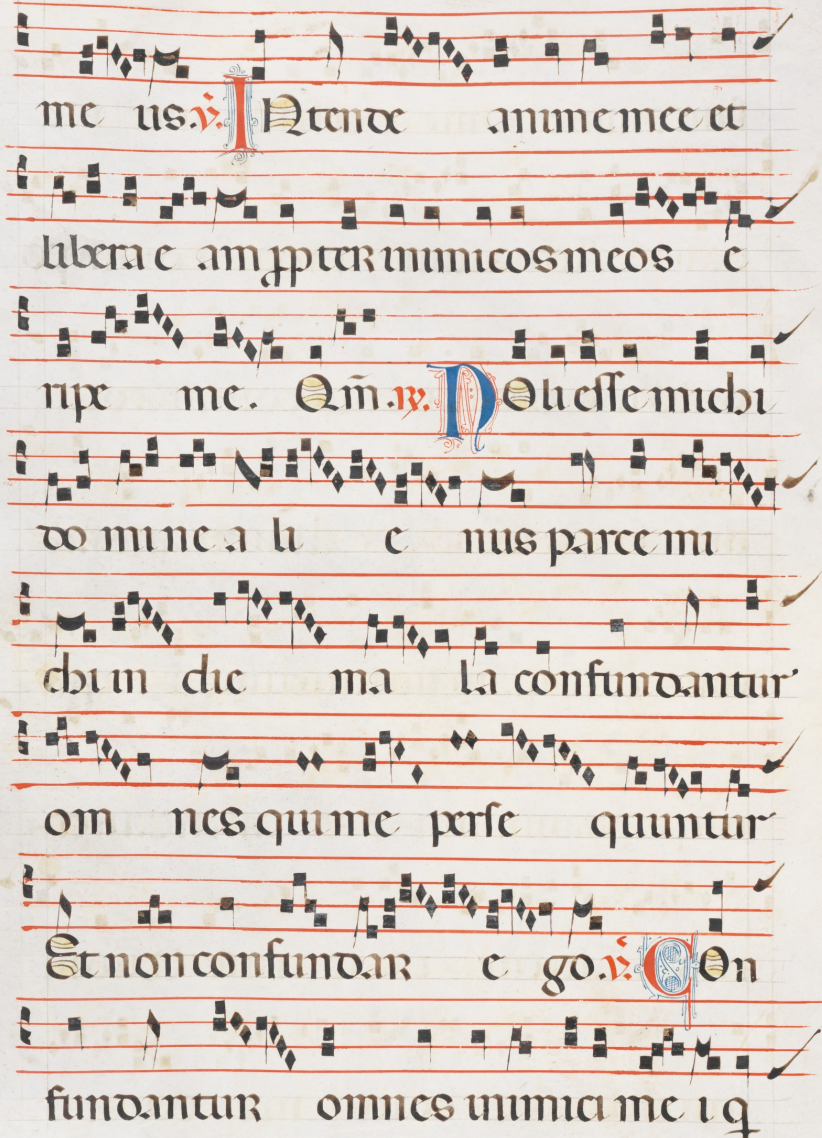 me us. ℣. INtende anime mee et
libera e am ꝓpter inimicos meos e
ripe me. Qm̄. ℟. NOli esse michi
do mine a li e nus parce mi
chi in die ma la confundantur
om nes qui me perse quuntur
Et non confundar e go. ℣. COn
fundantur omnes inimici me i q